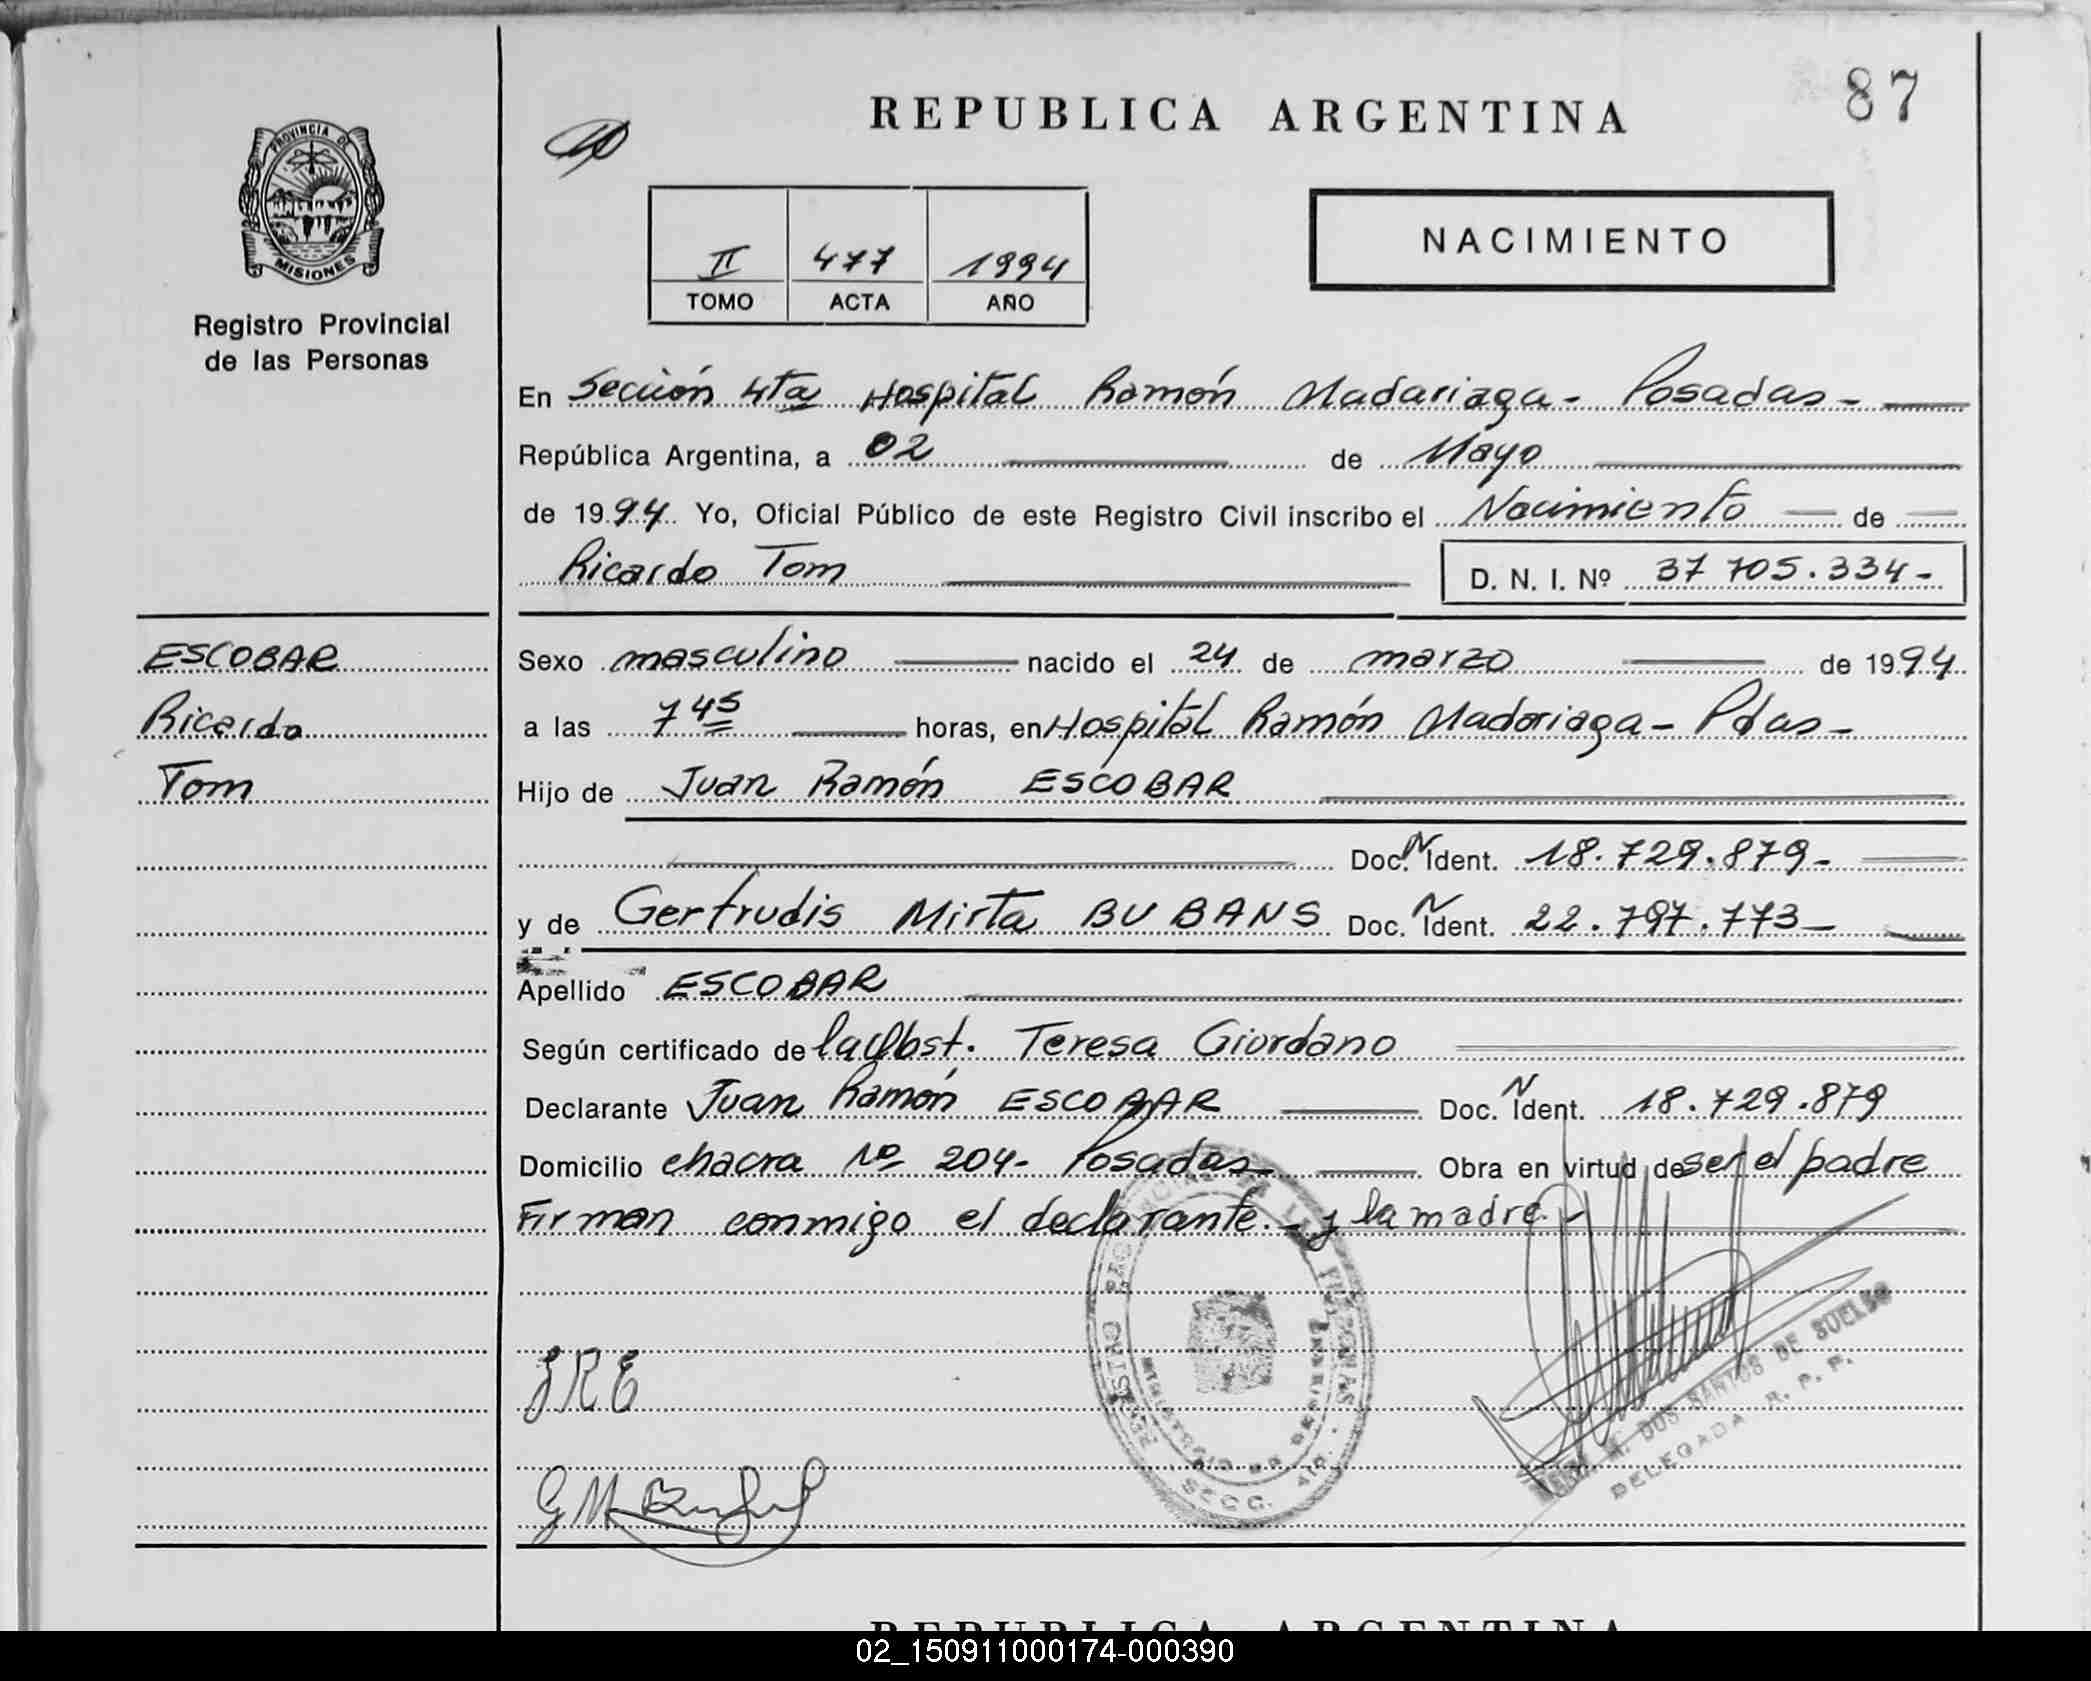 REPUBLICA ARGENTINA
87
PROVINCIA DE
MISIONES
Registro Provincial
de las Personas
II 477 1994
TOMO ACTA AÑO
NACIMIENTO
En Sección 4ta Hospital Ramón Madariaga - Posadas -
República Argentina, a 02 de Mayo
de 1994 Yo, Oficial Público de este Registro Civil inscribo el Nacimiento de
Ricardo Tom D. N. I. Nº 37 705.334-
ESCOBAR
Ricardo
Tom
Sexo masculino nacido el 24 de marzo de 1994
a las 7 45 horas, en Hospital Ramón Madariaga - Pdas -
Hijo de Juan Ramón ESCOBAR
Doc. N Ident. 18.729.879-
y de Gertrudis Mirta BUBANS Doc. N Ident. 22.797.773-
Apellido ESCOBAR
Según certificado de la Obst. Teresa Giordano
Declarante Juan Ramón ESCOBAR Doc. N Ident. 18.729.879
Domicilio chacra Nº 204- Posadas Obra en virtud de ser el padre
Firman conmigo el declarante.- y la madre.-
JRE
GM
REGISTRO
SECC. 4ta.
DOS SANTOS DE SUELDO
DELEGADA R. P. P.
REPUBLICA ARGENTINA
02_150911000174-000390